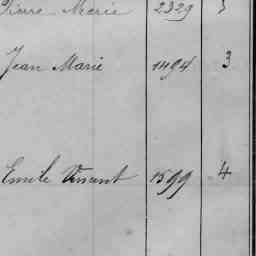 Pierre Marie 2329
Jean Marie 1494 3
Emile Vincent 1599 4